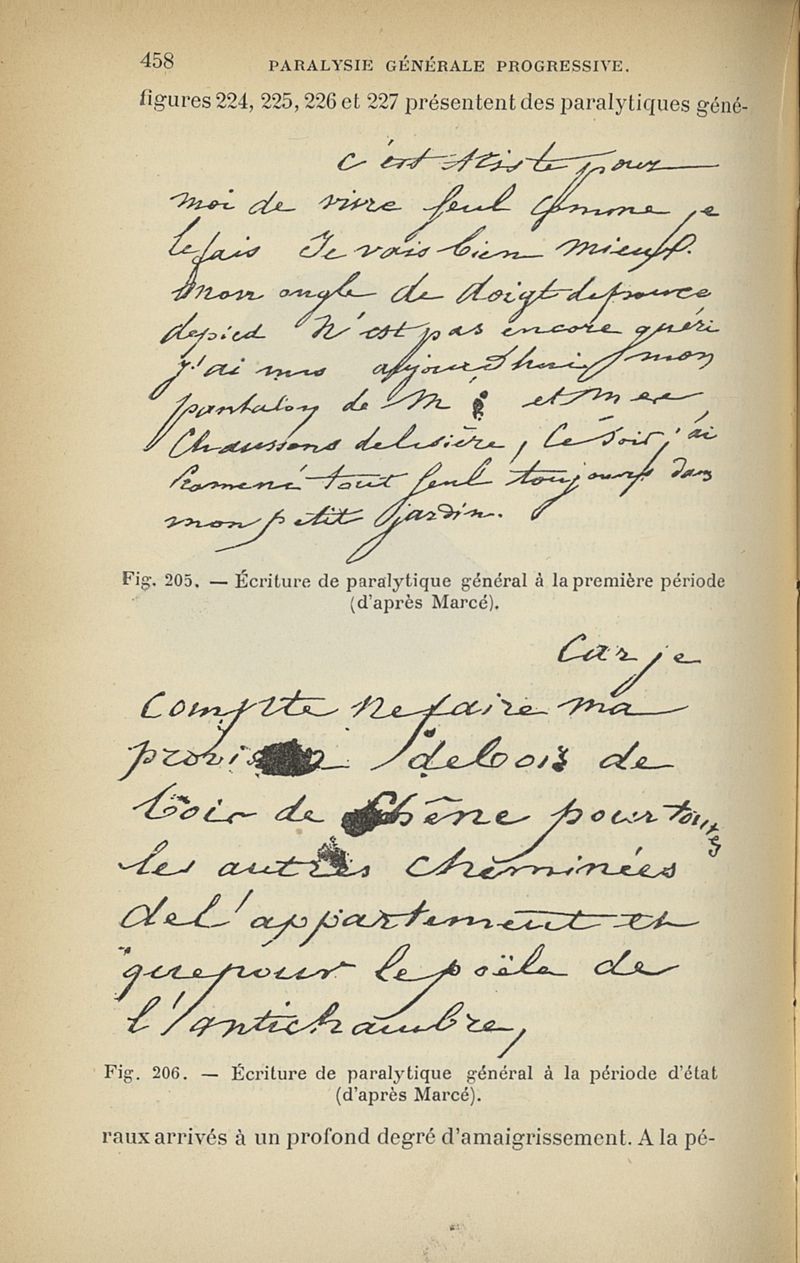 458
PARALYSIE GÉNÉRALE PROGRESSIVE.
figures 224, 225, 226 et 227 présentent des paralytiques géné-
c'est triste pour
moi de vivre seul comme je
le fais Je vais bien mieux.
mon ongle de doigt de pouce
de pied N'est pas encore guéri
j'ai mis aujourd'hui mon
pantalon de M et mes
Chaussons de lisière, Ce Soir j'ai
tout seul toujours dans
mon petit jardin.
Fig. 205. — Écriture de paralytique général à la première période
(d'après Marcé).
Car je
compte ne faire ma
de bois de
bois de chêne pour
les autres cheminées
de l'appartement et
que pour le poële de
l'antichambre,
Fig. 206. — Écriture de paralytique général à la période d'état
(d'après Marcé).
raux arrivés à un profond degré d'amaigrissement. A la pé-